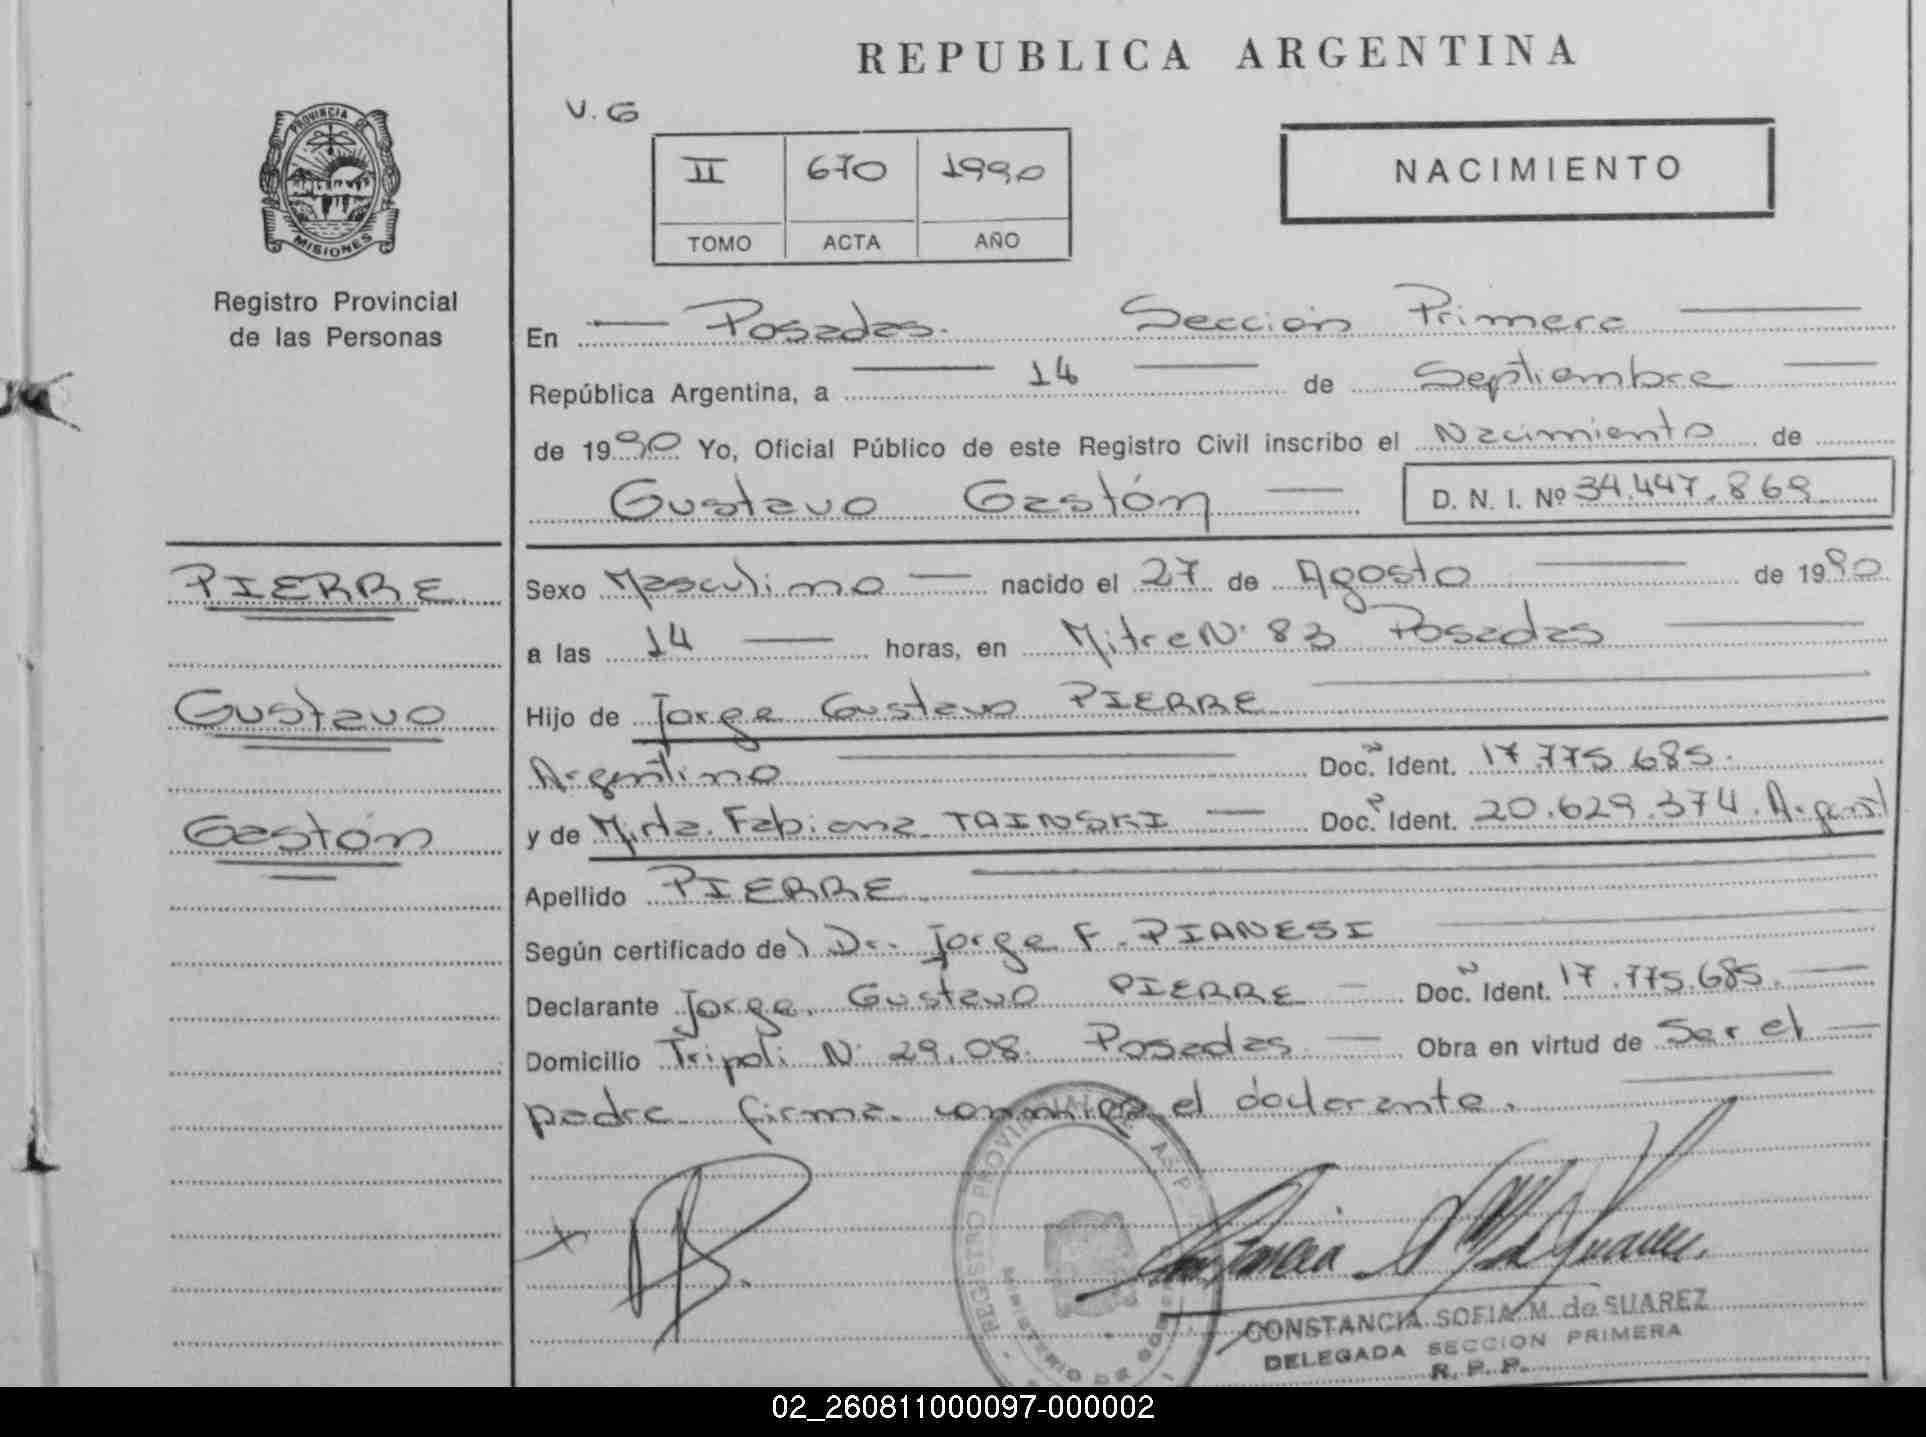 REPUBLICA ARGENTINA
V. G
PROVINCIA DE
MISIONES
Registro Provincial
de las Personas
II 670 1990
TOMO ACTA AÑO
NACIMIENTO
En Posadas. Sección Primera
República Argentina, a 14 de Septiembre
de 1990 Yo, Oficial Público de este Registro Civil inscribo el Nacimiento de
Gustavo Gastón D. N. I. Nº 34.447.869
PIERRE
Gustavo
Gastón
Sexo Masculino nacido el 27 de Agosto de 1990
a las 14 horas, en Mitre Nº 83 Posadas
Hijo de Jorge Gustavo PIERRE
Argentino Doc. Ident. 17.775.685.
y de Mirta Fabiana TAINSKI Doc. Ident. 20.629.374. Argent
Apellido PIERRE
Según certificado del Dr. Jorge F. PIANESI
Declarante Jorge Gustavo PIERRE Doc. Ident. 17.775.685.
Domicilio Tripoli Nº 29.08. Posadas Obra en virtud de Ser el
padre firma conmigo el declarante.
REGISTRO PROVINCIAL DE
MINISTERIO DE GOBIERNO
CONSTANCIA SOFIA M. de SUAREZ
DELEGADA SECCION PRIMERA
R. P. P.
02_260811000097-000002